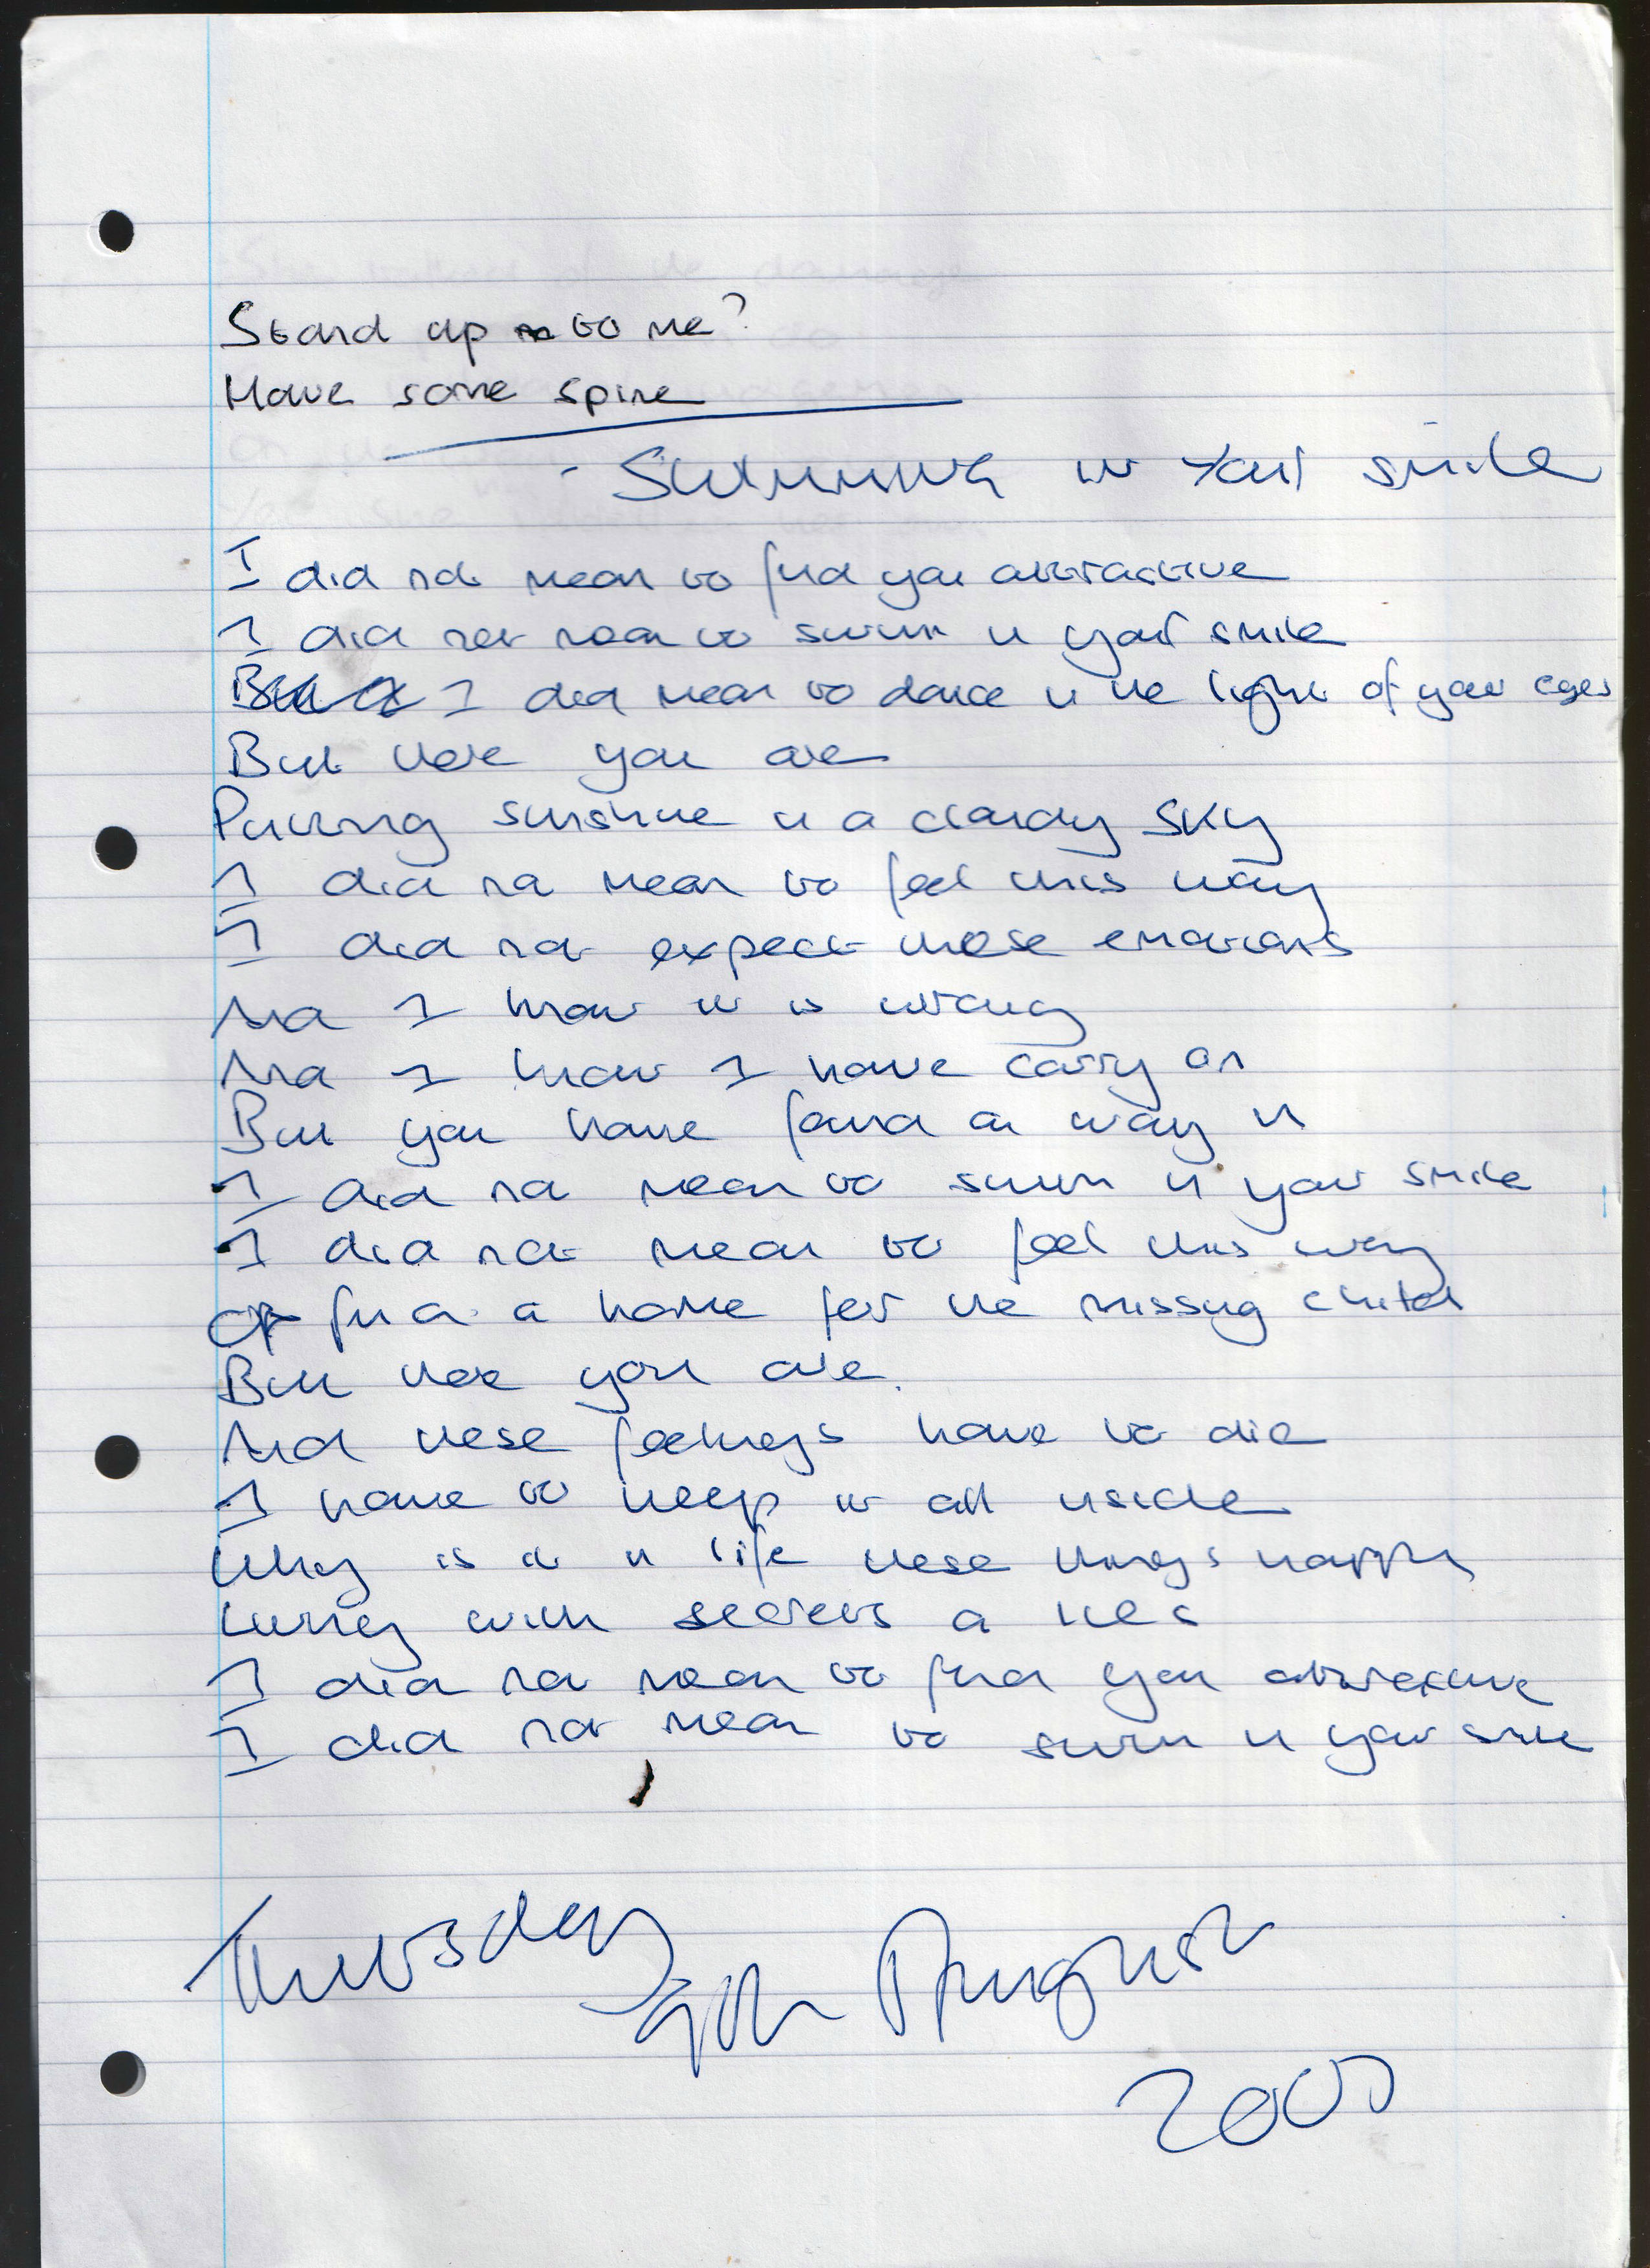 Stand up to me?
Have some spine
- Swimming in Your smile
I did not mean to find you attractive
I did not mean to swim in your smile
I did mean to dance in the light of your eyes
But there you are
Putting sunshine in a cloudy sky
I did not mean to feel this way
I did not expect these emotions
And I know it is wrong
And I know I have carry on
But you have found a way in
I did not mean to swim in your smile
I did not mean to feel this way
Or find a home for the missing child
But there you are.
And these feelings have to die
I have to keep it all inside
Why is it in life these things happen
Living with secrets a lies
I did not mean to find you attractive
I did not mean to swim in your smile
Thursday August